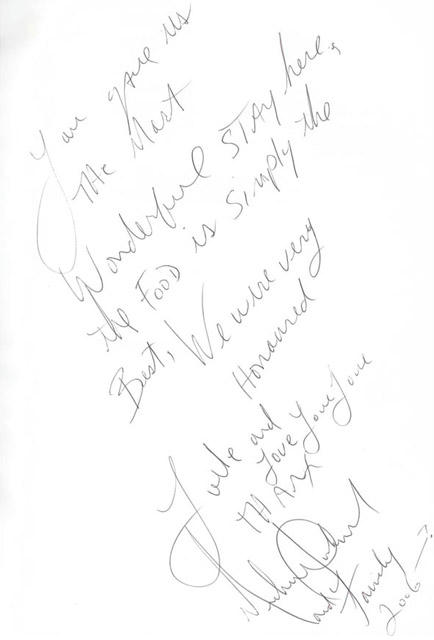 You gave us
THE Most
Wonderful STAY here,
the FOOD is Simply the
Best, We were very
Honoured
and
Love Love Love
THANX
Michael Jackson
and Family
2006